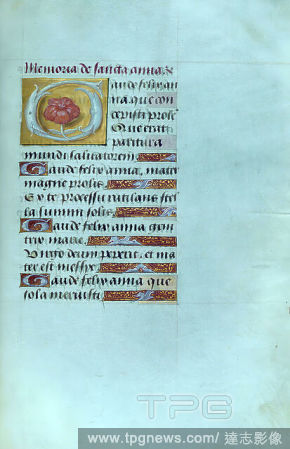 Memoria de sancta anna
Gaude felix an
na que con
cepisti prole
Que erat
paritura
mundi salvatorem
Gaude felix anna, mater
magne prolis
Ex te processit rutilans stel
la summi solis
Gaude felix anna gen
trix marie
Virgo deum peperit, et ma
ter est messye
Gaude felix anna que
sola meruisti
TPG
www.tpgnews.com/ 達志影像